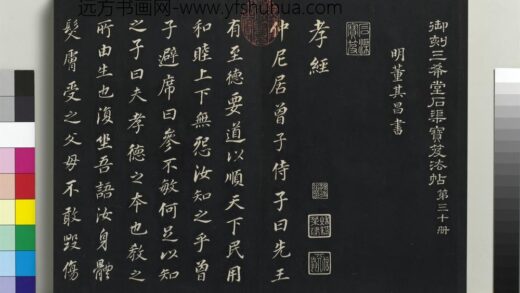 远方书画网 www.yfshuhua.com
御刻三希堂石渠寶笈法帖第三十册
明董其昌書
孝經
仲尼居曾子侍子曰先王
有至德要道以順天下民用
和睦上下無怨汝知之乎曾
子避席曰參不敏何足以知
之子曰夫孝德之本也教之
所由生也復坐吾語汝身體
髮膚受之父母不敢毀傷